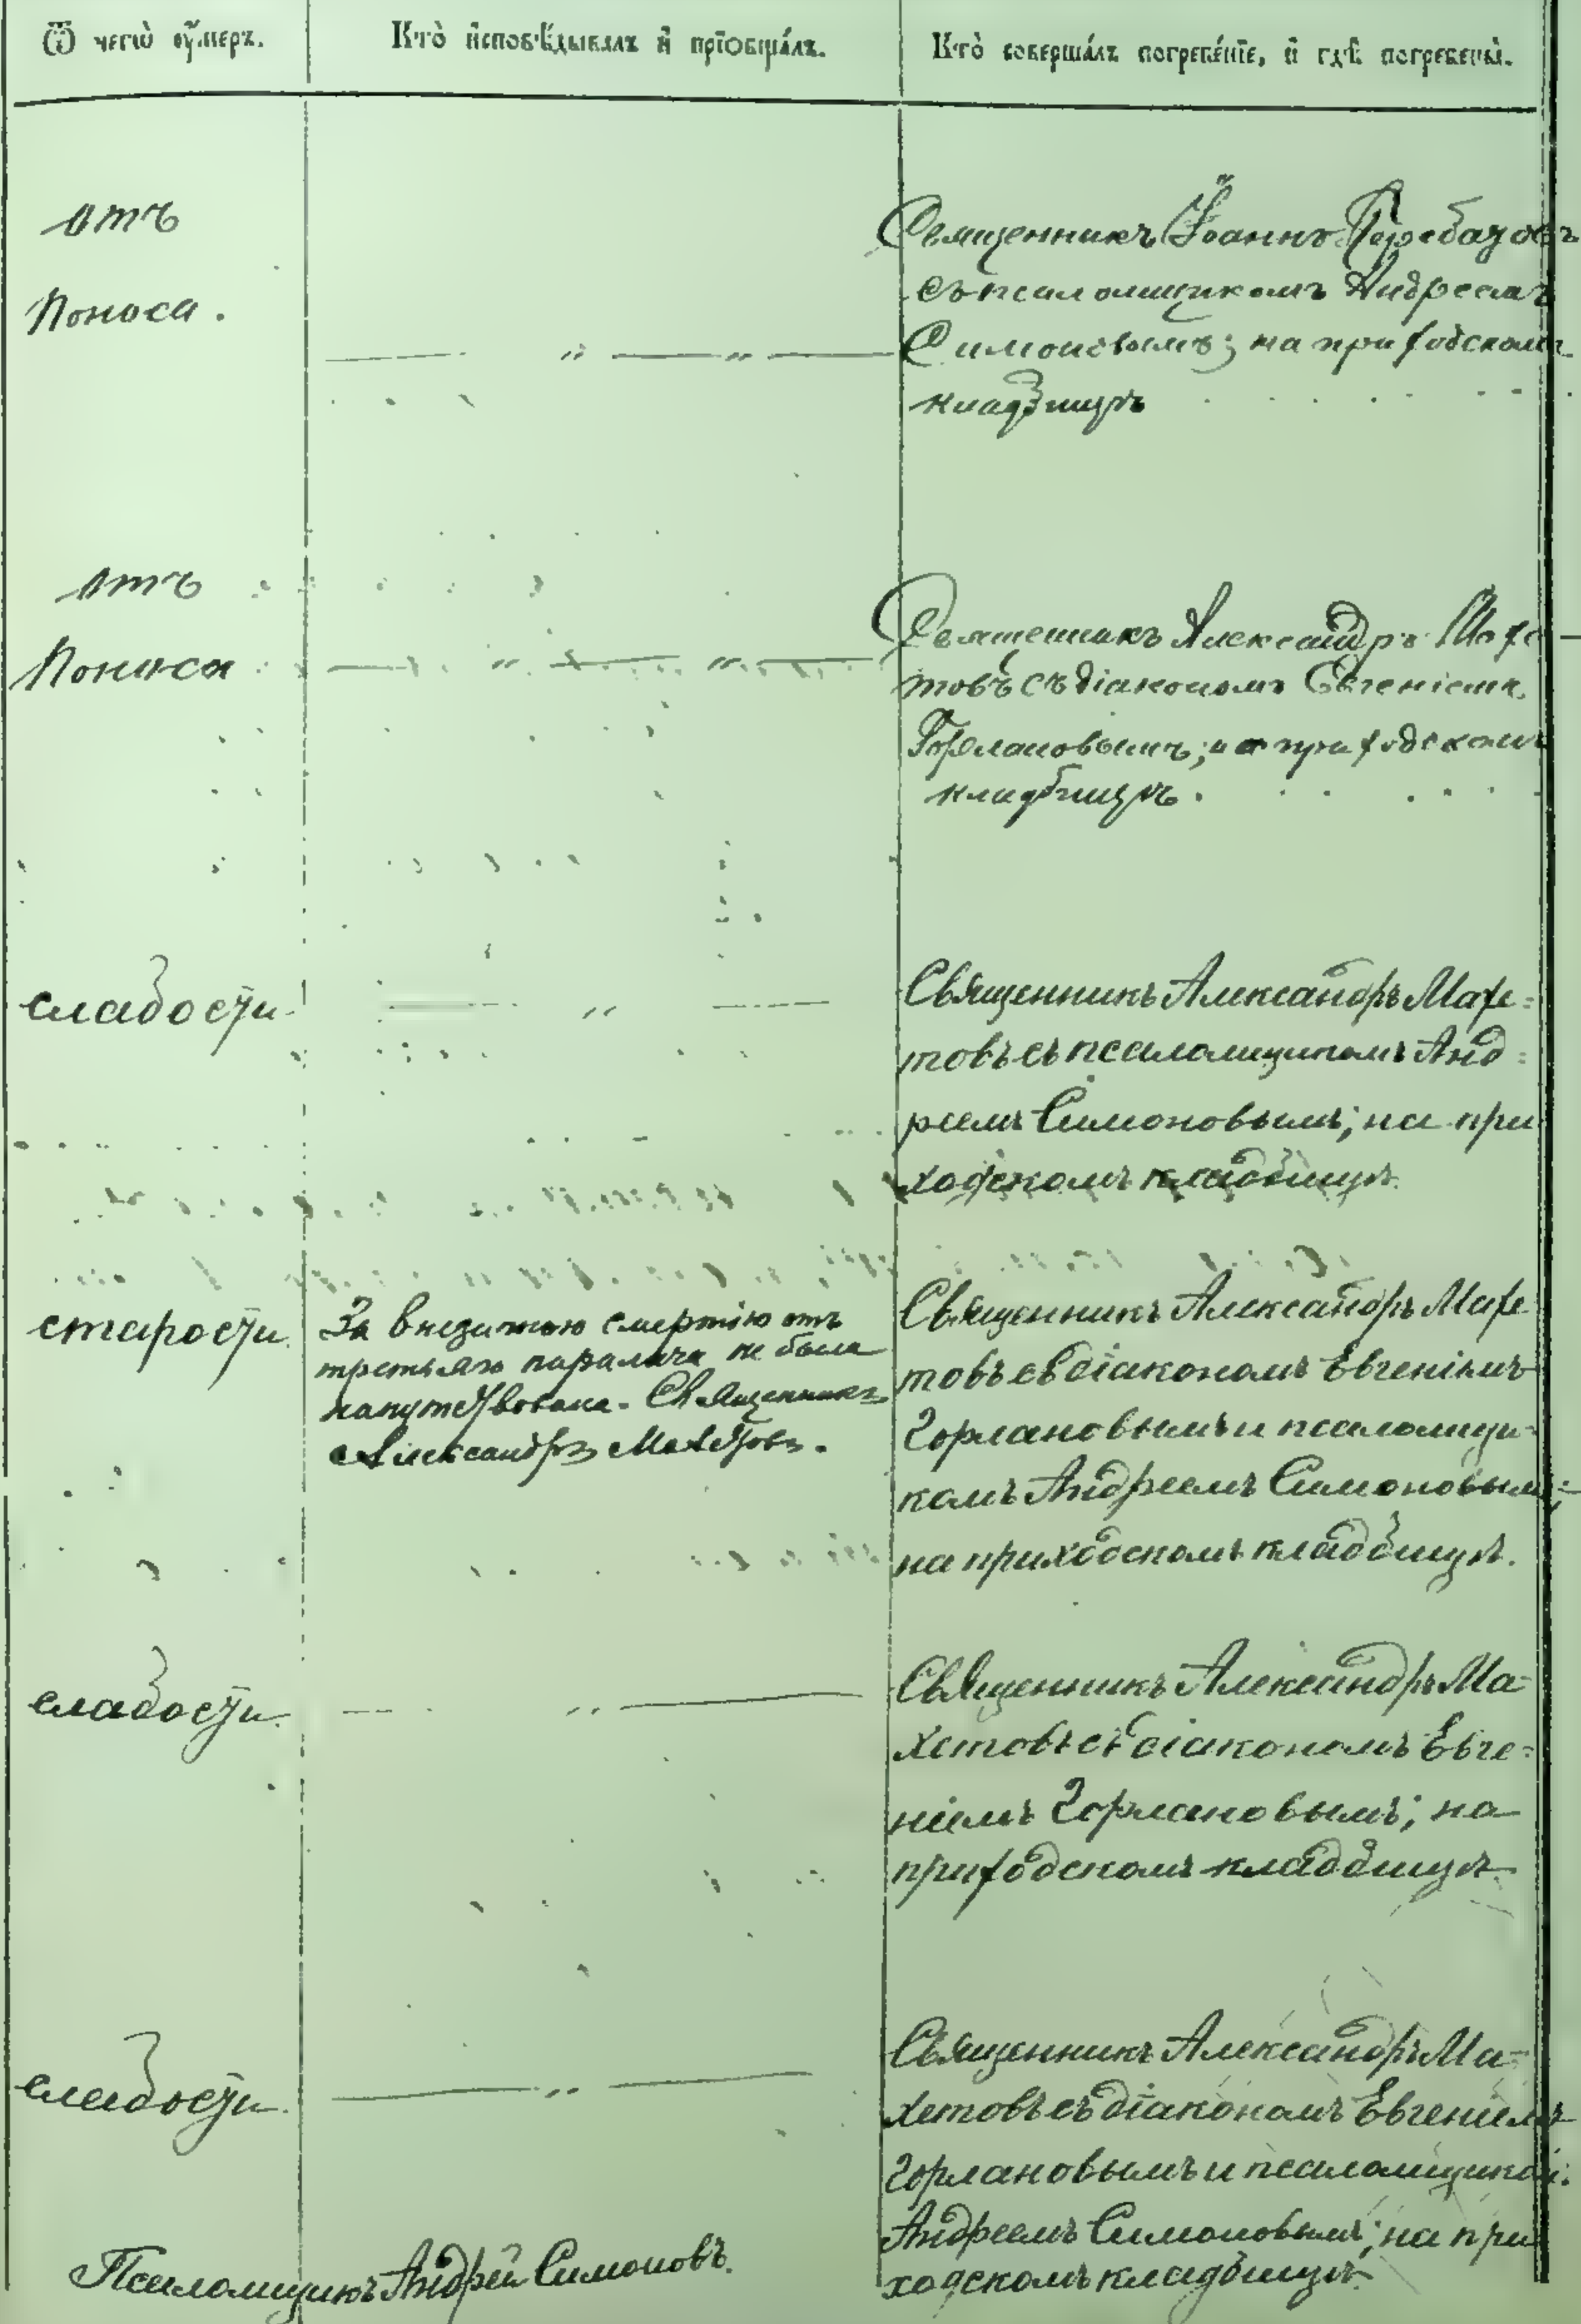 Ѿ чегѡ̀ ᲂу҆́меръ.
Кто̀ и҆сповѣ́дывалъ и҆ прїѡбща́лъ.
Кто̀ соверша́лъ погребе́нїе, и҆ гдѣ̀ погребены̀.
отъ
Поноса.
Священникъ Іоаннъ
съ псаломщикомъ Андреемъ
Симоновымъ; на приходскомъ
кладбищѣ
отъ
Поноса
Священникъ Александръ Махе-
товъ съ діакономъ Евгеніемъ
Горлановымъ; на приходскомъ
кладбищѣ.
слабости.
Священникъ Александръ Махе=
товъ съ псаломщикомъ Анд=
реемъ Симоновымъ; на при
ходскомъ кладбищѣ.
старости.
За внезапною смертію отъ
третьяго паралича не была
напутствована. Священникъ
Александръ Махетовъ.
Священникъ Александръ Махе
товъ съ діакономъ Евгеніемъ
Горлановымъ и псаломщи=
комъ Андреемъ Симоновымъ;
на приходскомъ кладбищѣ.
слабости.
Священникъ Александръ Ма=
хетовъ съ діакономъ Евге=
ніемъ Горлановымъ; на
приходскомъ кладбищѣ.
слабости.
Священникъ Александръ Ма=
хетовъ съ діакономъ Евгеніемъ
Горлановымъ и псаломщиком.
Андреемъ Симоновымъ; на при
ходскомъ кладбищѣ.
Псаломщикъ Андрей Симоновъ.